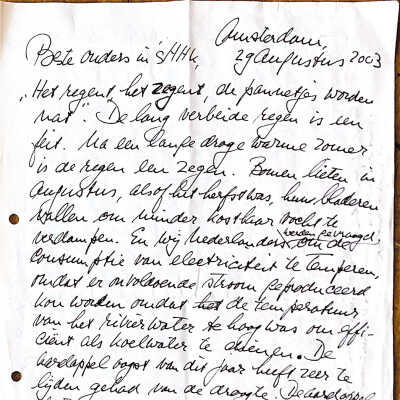 Amsterdam,
29 Augustus 2003
Beste ouders in 's HHK,
„Het regent, het zegent, de pannetjes worden
nat". De lang verbeide regen is een
feit. Na een lange droge warme zomer
is de regen een zegen. Bomen lieten in
Augustus, alsof het herfst was, hun bladeren
vallen om minder kostbaar vocht te
verdampen. En wij Nederlanders werden gevraagd, om de
consumptie van electriciteit te temperen,
omdat er onvoldoende stroom geproduceerd
kon worden omdat het de temperatuur
van het rivierwater te hoog was om effi-
ciënt als koelwater te dienen. De
aardappel oogst van dit jaar heeft zeer te
lijden gehad van de droogte. De aardappel